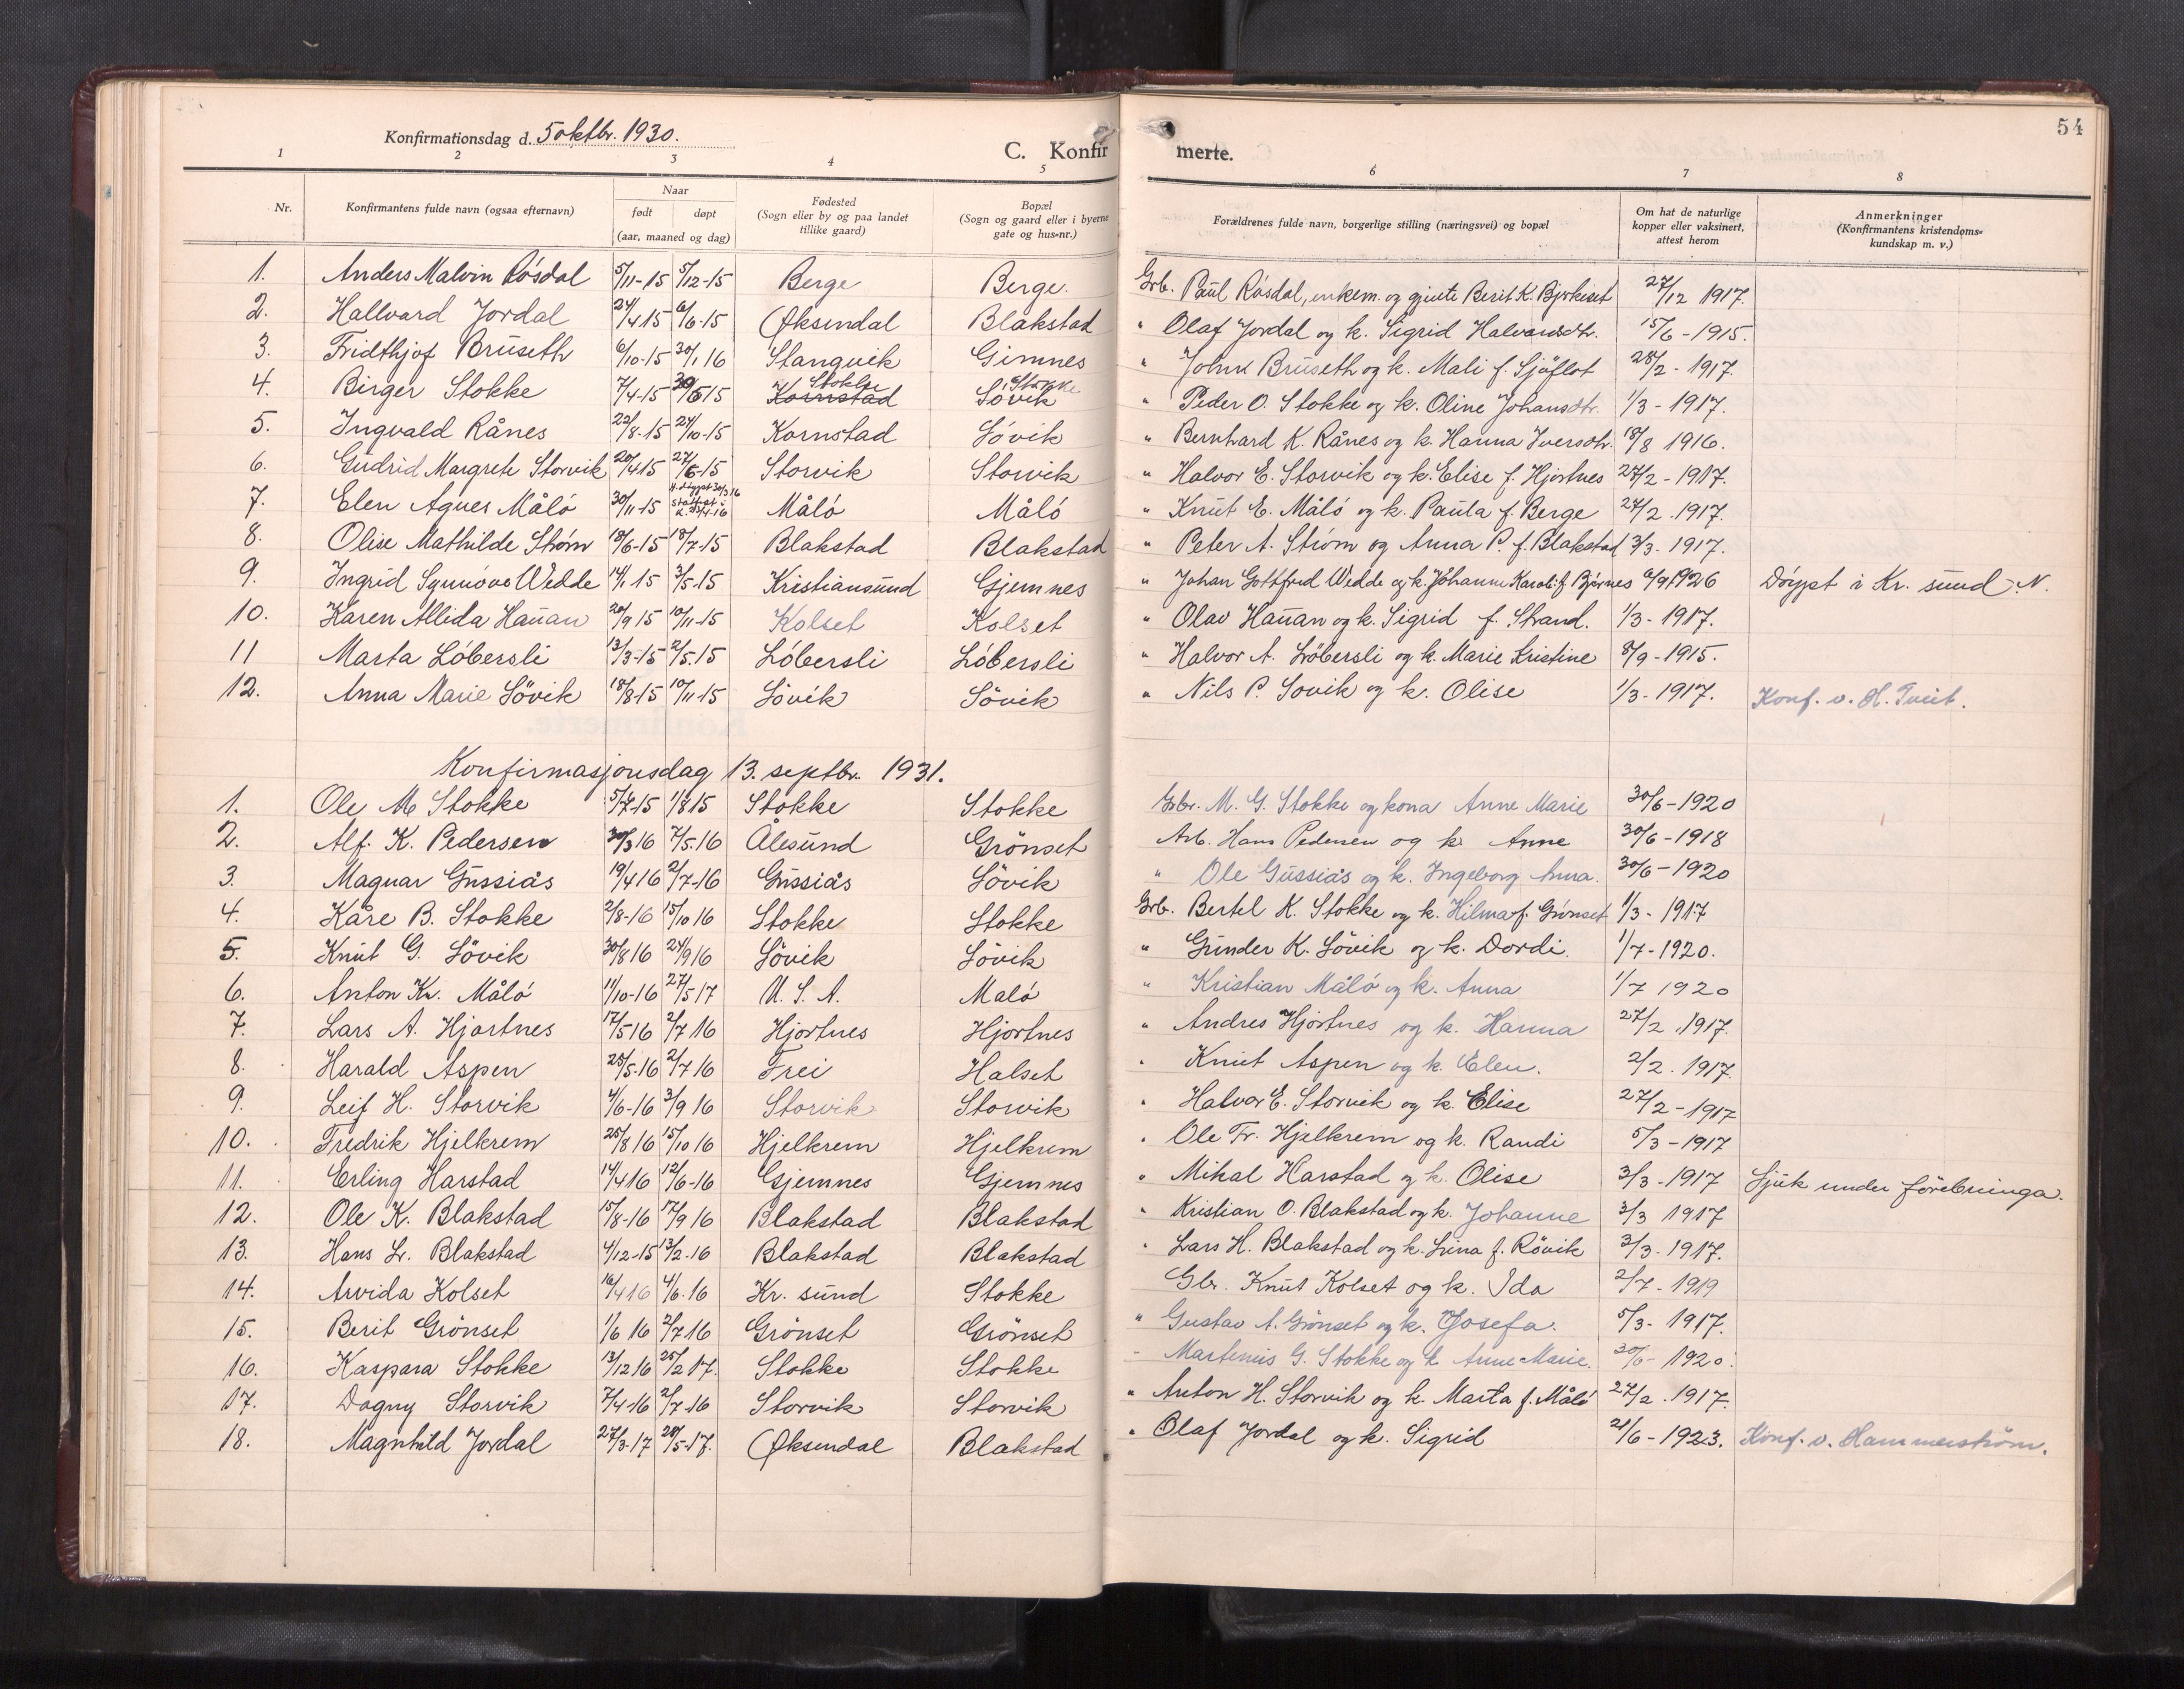 54
Konfirmationsdag d. 5 oktbr. 1930.
C. Konfirmerte.
1 2 3 4 5 6 7 8
Nr. | Konfirmantens fulde navn (ogsaa efternavn) | Naar født døpt (aar, maaned og dag) | Fødested (Sogn eller by og paa landet tillike gaard) | Bopæl (Sogn og gaard eller i byerne gate og hus=nr.) | Forældrenes fulde navn, borgerlige stilling (næringsvei) og bopæl | Om hat de naturlige kopper eller vaksinert, attest herom | Anmerkninger (Konfirmantens kristendoms=kundskap m. v.)
1. Anders Malvin Rósdal 5/11-15 5/12-15 Berge Berge. Grb. Paul Rósdal, enkem. og gjente Berit K. Bjerkeset 27/12 1917.
2. Hallvard Jordal 24/4 15 6/6-15 Øksendal Blakstad " Olaf Jordal og k. Sigrid Halvardsdtr. 15/6-1915.
3. Fridthjof Bruseth 6/10-15 30/1 16 Stangvik Gimnes " Johnx Bruseth og k. Mali f. Sjöflot 28/2-1917.
4. Birger Stokke 7/4-15 30/5 15 Kornstad Stokke Sövik Stokke " Peder O. Stokke og k. Oline Johansdtr. 1/3-1917.
5. Ingvald Rånes 22/8-15 24/10-15 Kornstad Sövik " Bernhard K. Rånes og k. Hanna Iversdtr. 18/8 1916.
6. Gudrid Margrete Storvik 20/4 15 27/6-15 Storvik Storvik " Halvor E. Storvik og k. Elise f. Hjortnes 27/2-1917.
7. Elen Agnes Måló 30/11-15 H. døypt 30/3 16 Måló Måló " Knut E. Måló og k. Paula f. Berge 27/2.1917.
8. Olise Mathilde Strøm 18/6-15 18/7-15 Blakstad Blakstad " Peter A. Strøm og Anna P. f. Blakstad 3/3.1917.
9. Ingrid Synnöve Wedde 14/1 15 3/5-15 Kristiansund Gjemnes " Johan Gottfred Wedde og k. Johanne Karoli f. Bjørnes 6/9 1926 Döypt i Kr. sund-N.
10. Karen Allida Hanan 20/9 15 10/11-15 Kolset Kolset " Olav Hanan og k. Sigrid f. Strand. 1/3-1917.
11 Marta Löbersli 13/3-15 2/5.15 Löbersli Löbersli " Halvor A. Löbersli og k. Marie Kristine 8/9-1915.
12. Anna Marie Sövik 18/8-15 10/11-15 Sövik Sövik " Nils P. Sovik og k. Olise 1/3-1917. Konf. v. H. Tveit.
Konfirmasjonsdag 13. septbr. 1931.
1. Ole M Stokke 5/7-15 1/8 15 Stokke Stokke Grbr. M. G. Stokke og kona Anne Marie 30/6-1920
2. Alf. K. Pedersen 30/3 16 7/5-16 Ålesund Grönset Arb. Hans Pedersen og k. Anne 30/6-1918
3. Magnar Gussiås 19/4 16 2/7-16 Gussiås Sövik " Ole Gussiås og k. Ingeborg Anna. 30/6-1920
4. Kåre B. Stokke 2/8-16 15/10 16 Stokke Stokke Grb. Bertel K. Stokke og k. Hilma f. Grönset 1/3-1917
5. Knut G. Sövik 30/8 16 24/9 16 Sövik Sövik " Gunder K. Sövik og k. Dordi. 1/7-1920.
6. Anton Kr. Måló 11/10-16 27/5 17 U. S. A. Maló " Kristian Måló og k. Anna 1/7 1920
7. Lars A. Hjortnes 17/5 16 2/7 16 Hjortnes Hjortnes " Andres Hjortnes og k. Hanna 27/2.1917.
8. Harald Aspen 25/5-16 2/7 16 Frei Halset " Knut Aspen og k. Elen. 2/2.1917.
9. Leif H. Storvik 4/6-16 3/9 16 Storvik Storvik " Halvor E. Storvik og k. Elise 27/2-1917
10. Fredrik Hjelkrem 25/8 16 15/10 16 Hjelkrem Hjelkrem " Ole Fr. Hjelkrem og k. Randi 5/3-1917
11. Erling Harstad 14/4 16 12/6-16 Gjemnes Gjemnes " Mikal Harstad og k. Olise 3/3-1917 Sjuk under förebuinga.
12. Ole K. Blakstad 15/8-16 17/9 16 Blakstad Blakstad " Kristian O. Blakstad og k. Johanne 3/3 1917
13. Hans L. Blakstad 4/12-15 13/2-16 Blakstad Blakstad " Lars H. Blakstad og k. Lina f. Rövik 3/3-1917.
14. Arvida Kolset 16/4 16 4/6.16 Kr. sund Stokke Gbr. Knut Kolset og k. Ida 2/7-1919
15. Berit Grönset 1/6 16 2/7 16 Grönset Grönset " Gustav A. Grönset og k. Josefa. 5/3-1917.
16. Kaspara Stokke 13/12 16 25/2 17. Stokke Stokke - Martenius G. Stokke og k Anne Marie. 30/6-1920.
17. Dagny Storvik 7/4-16 2/7-16 Storvik Storvik " Anton H. Storvik og k. Marta f. Måló 27/2.1917.
18. Magnhild Jordal 27/3-17 28/5-17. Øksendal Blakstad " Olaf Jordal og k. Sigrid 21/6-1923. Konf. v. Hammerström.